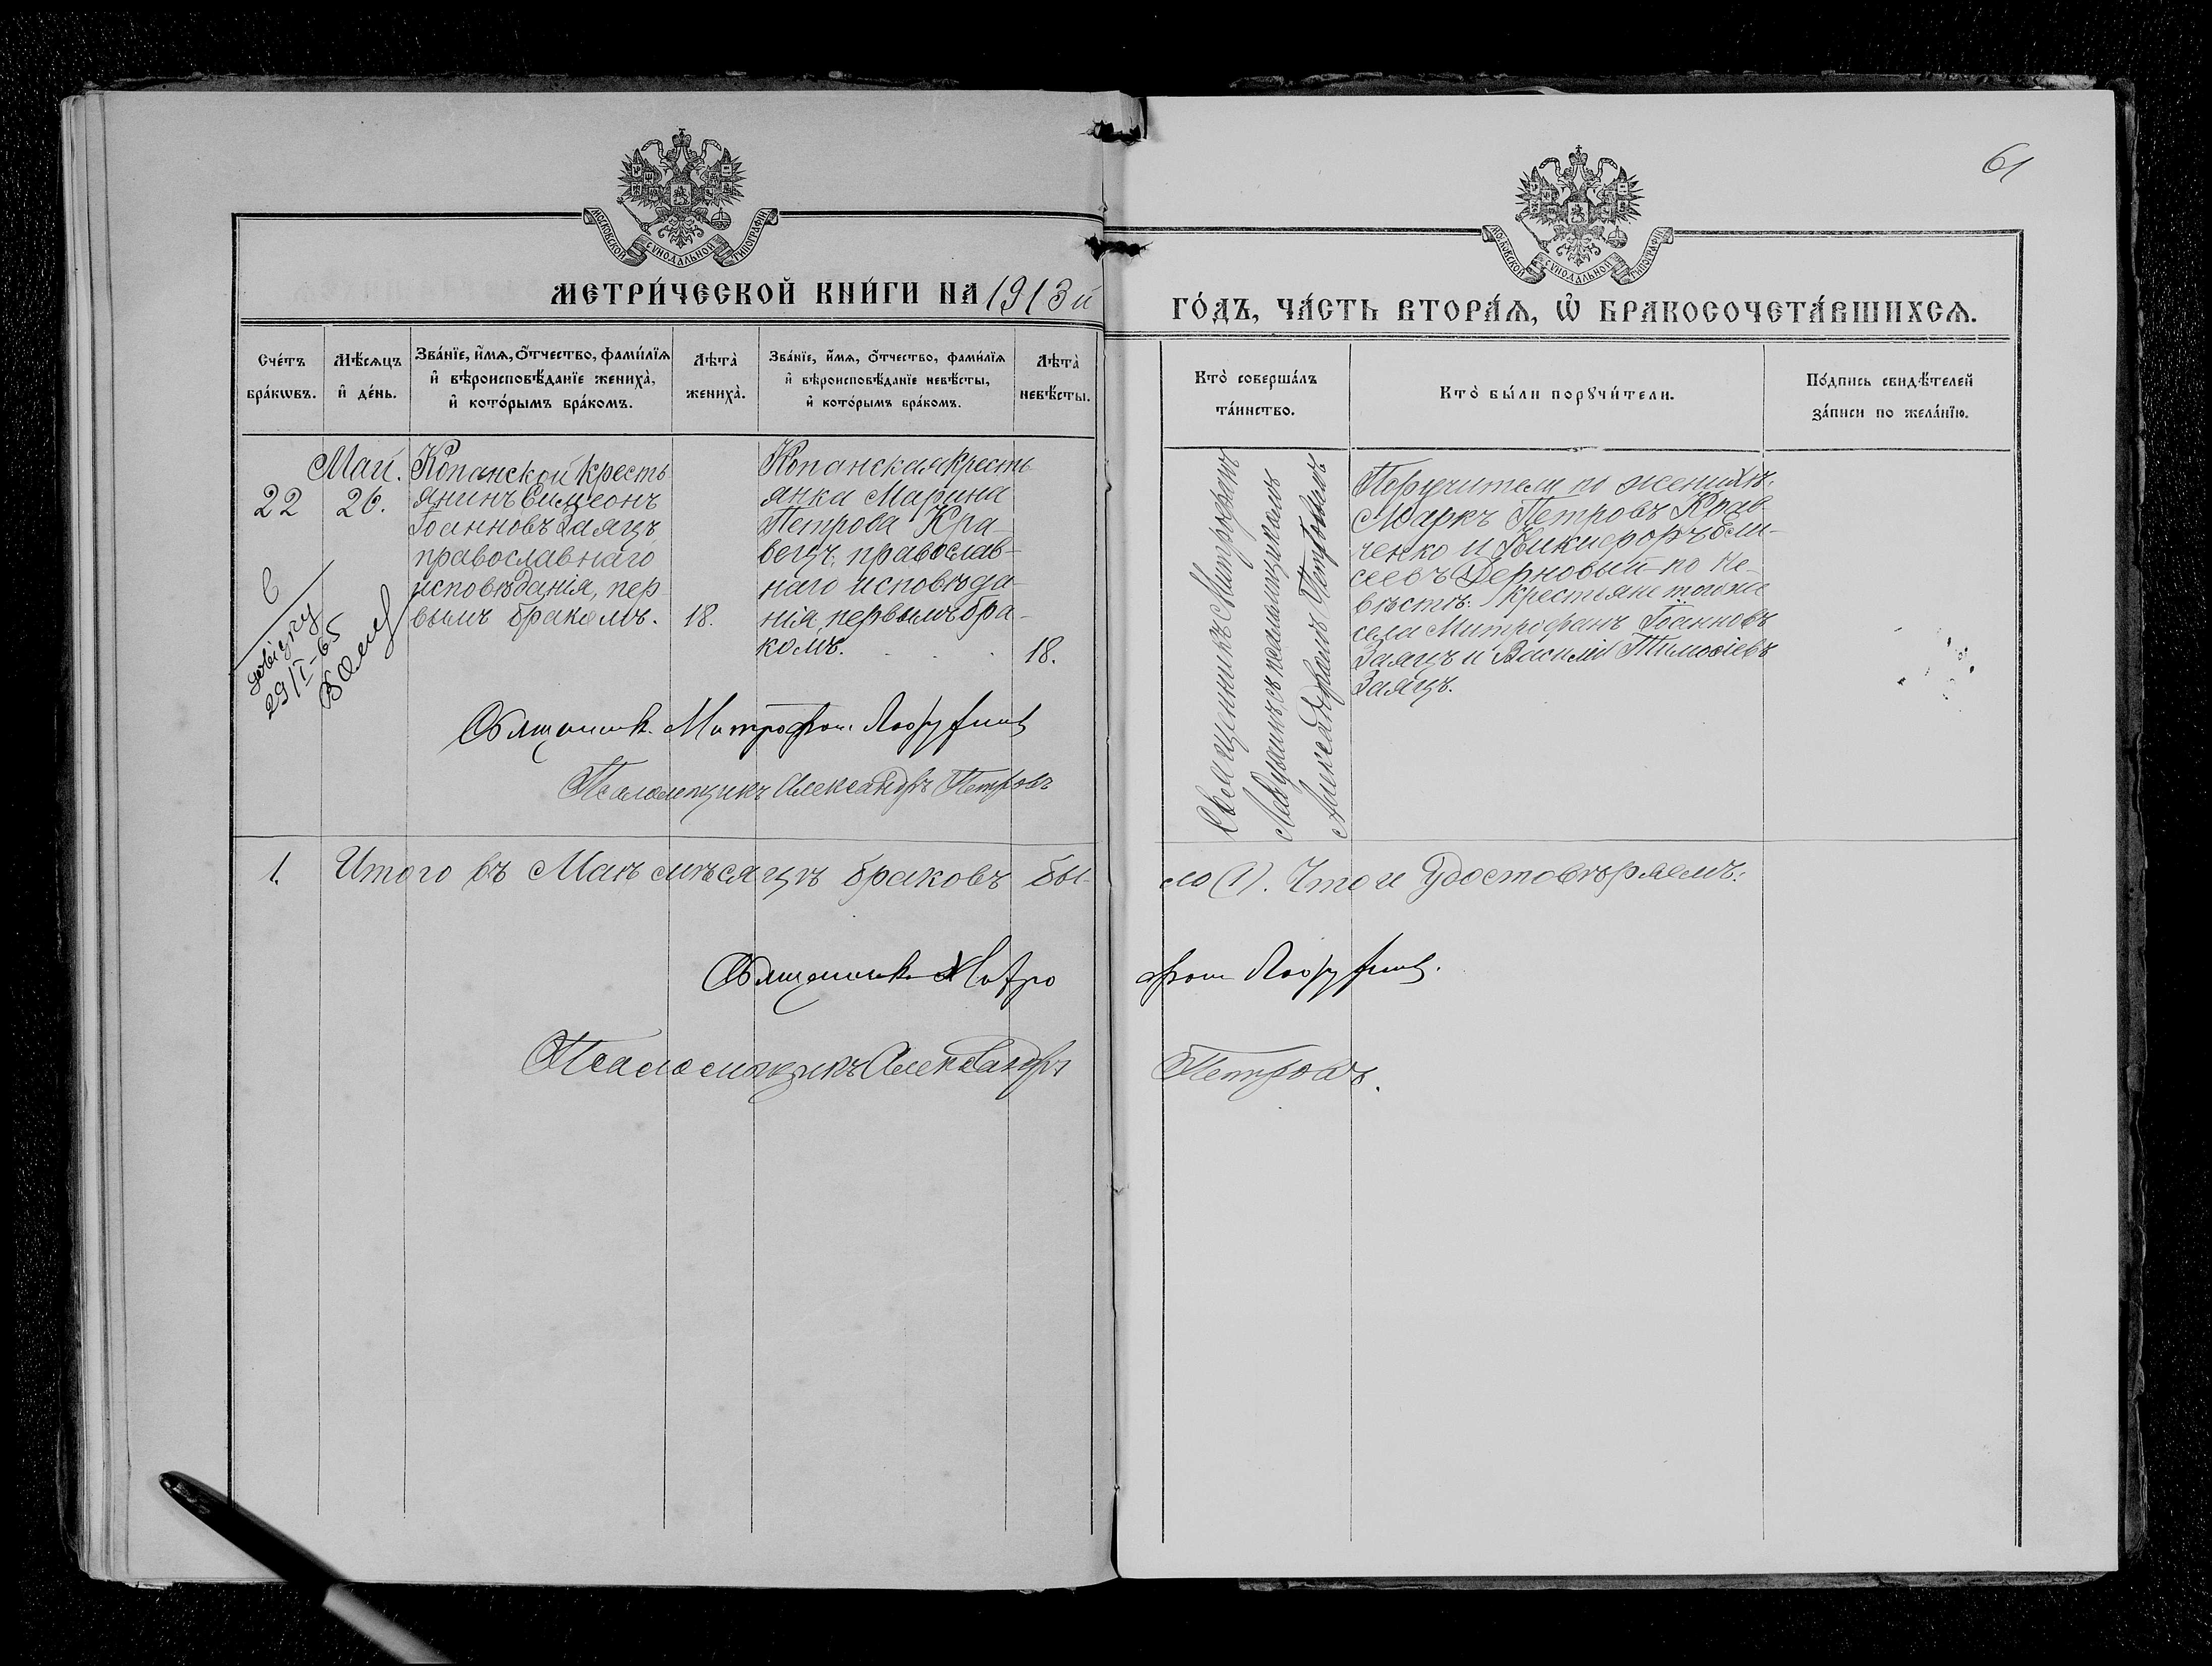 61
МОСКОВСКОЙ СѴНОДАЛЬНОЙ ТИПОГРАФІИ
МОСКОВСКОЙ СѴНОДАЛЬНОЙ ТИПОГРАФІИ
МЕТРИ́ЧЕСКОЙ КНИ́ГИ НА 1913й
ГО́ДЪ, ЧА́СТЬ ВТОРА́Ѧ, Ѡ҆ БРАКОСОЧЕТА́ВШИХСѦ.
Сче́тъ
бра́кѡвъ.
Мѣ́сѧцъ
и҆ де́нь.
Зва́нїе, и҆́мѧ, ѻ҆́тчество, фами́лїѧ
и҆ вѣроисповѣ́данїе жениха̀,
и҆ кото́рымъ бра́комъ.
Лѣта̀
жениха̀.
Зва́нїе, и҆́мѧ, ѻ҆́тчество, фами́лїѧ
и҆ вѣроисповѣ́данїе невѣ́сты,
и҆ кото́рымъ бра́комъ.
Лѣта̀
невѣ́сты.
Кто̀ соверша́лъ
та́инство.
Кто̀ бы́ли порꙋчи́тели.
По́дпись свидѣ́телей
за́писи по жела́нїю.
22
Май.
26.
Копанской кресть
янинъ Симеонъ
Іоанновъ Заяцъ
православнаго
исповѣданія, пер
вымъ бракомъ.
18.
Копанская кресть
янка Марина
Петрова Кра-
вецъ, православ-
наго исповѣда-
нія, первымъ бра-
комъ.
18.
29/I-65
Священникъ Митрофанъ
съ псаломщикомъ
Александромъ Петровымъ
Поручители по женихѣ:
Маркъ Петровъ Крав-
ченко и Никифоръ Ели-
сеевъ Дерновый по не-
вѣстѣ: крестьяне того же
села Митрофанъ Іоанновъ
Заяцъ и Василій Тимоѳіевъ
Заяцъ.
Священникъ Митрофанъ
Псаломщикъ Александръ Петровъ
1. Итого въ Маѣ мѣсяцѣ браковъ бы-
ло (1). Что и удостовѣряемъ:
Священникъ Митро
фанъ
Псаломщикъ Александръ
Петровъ.